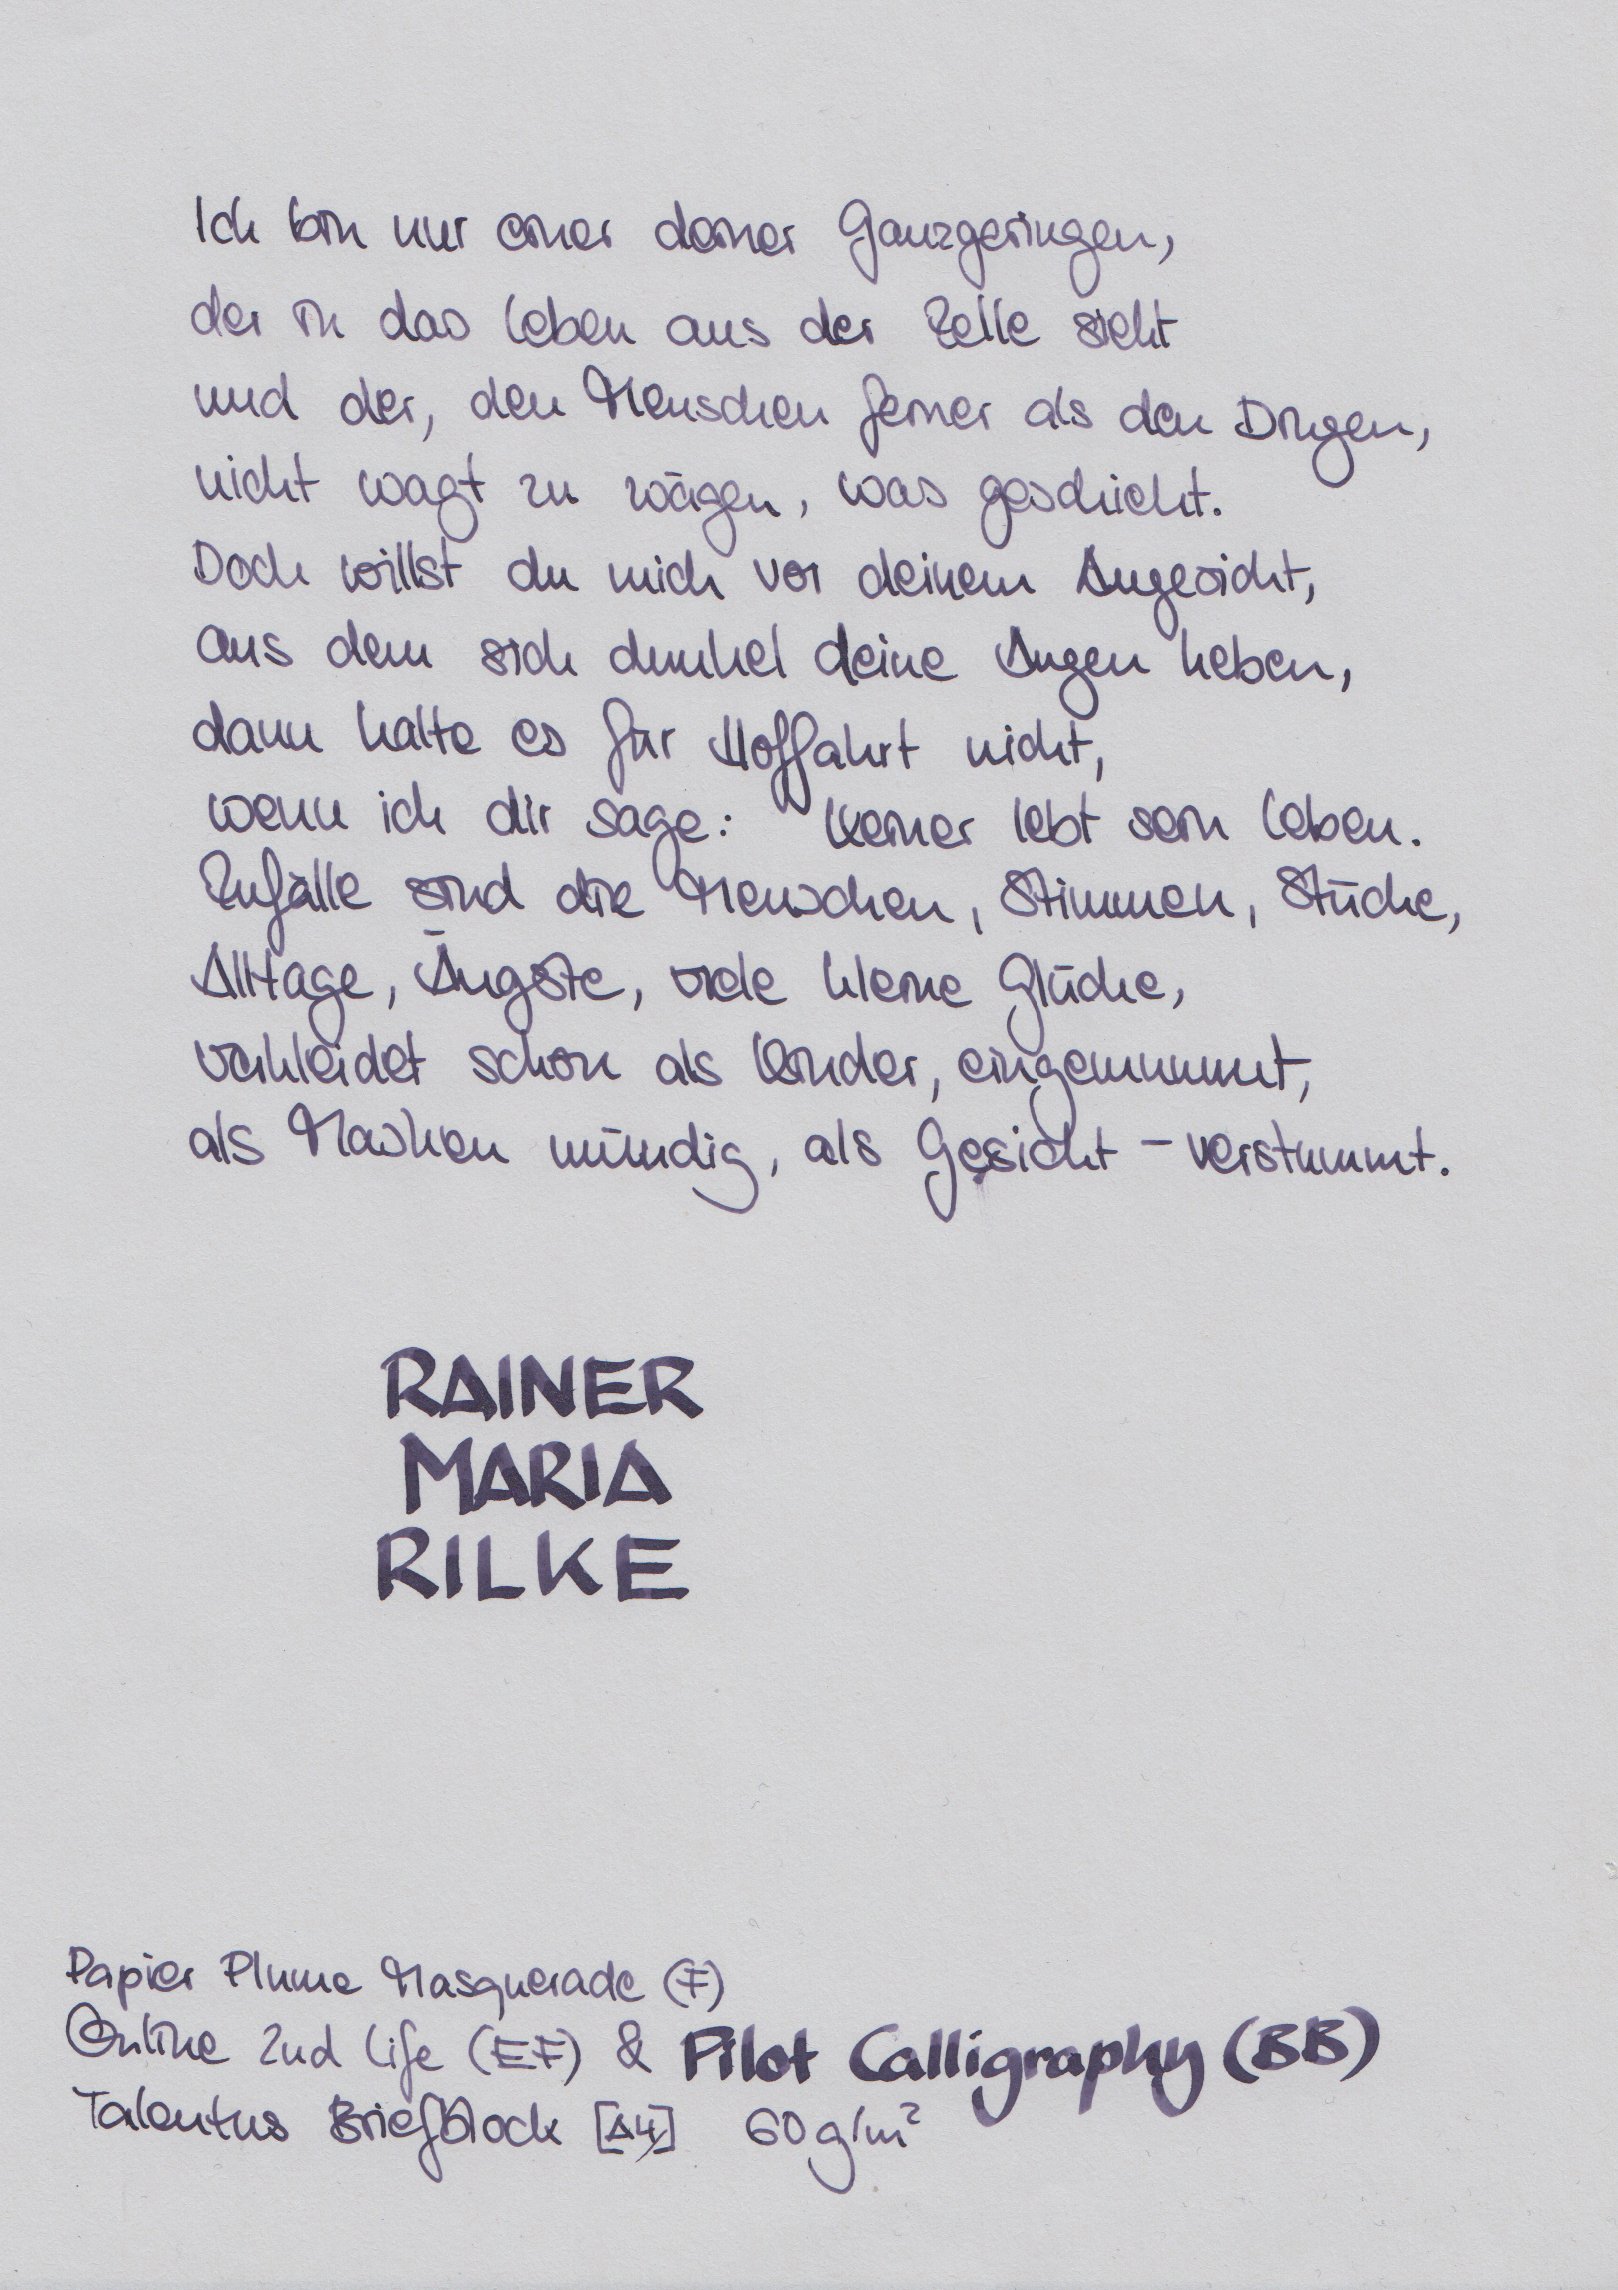 Ich bin nur einer deiner Ganzgeringen,
der in das Leben aus der Zelle sieht
und der, den Menschen ferner als den Dingen,
nicht wagt zu wägen, was geschieht.
Doch willst du mich vor deinem Angesicht,
aus dem sich dunkel deine Augen heben,
dann halte es für Hoffahrt nicht,
wenn ich dir sage: Keiner lebt sein Leben.
Zufälle sind die Menschen, Stimmen, Stücke,
Alltage, Ängste, viele kleine Glücke,
verkleidet schon als Kinder, eingemummt,
als Masken mündig, als Gesicht – verstummt.
RAINER
MARIA
RILKE
Papier Plume Masquerade (F)
Online 2nd Life (EF) & Pilot Calligraphy (BB)
Talentus Briefblock [A4] 60 g/m²